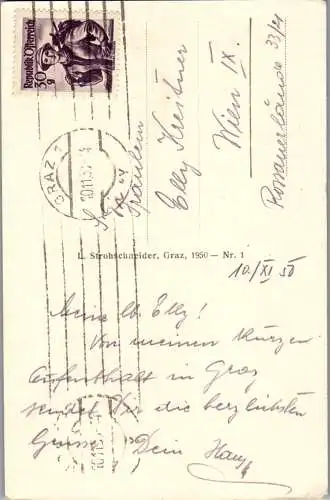 Republik Österreich
30 g
GRAZ 2
10.11.50
Fräulein
Elly Kreitner
Wien IX.
Rossauerlände 33/14
L. Strohschneider, Graz, 1950 — Nr. 1
10./XI 50
Meine lb. Elly!
Von meinem kurzen
Aufenthalt in Graz
sendet Dir die herzlichsten
Grüsse Dein Hans